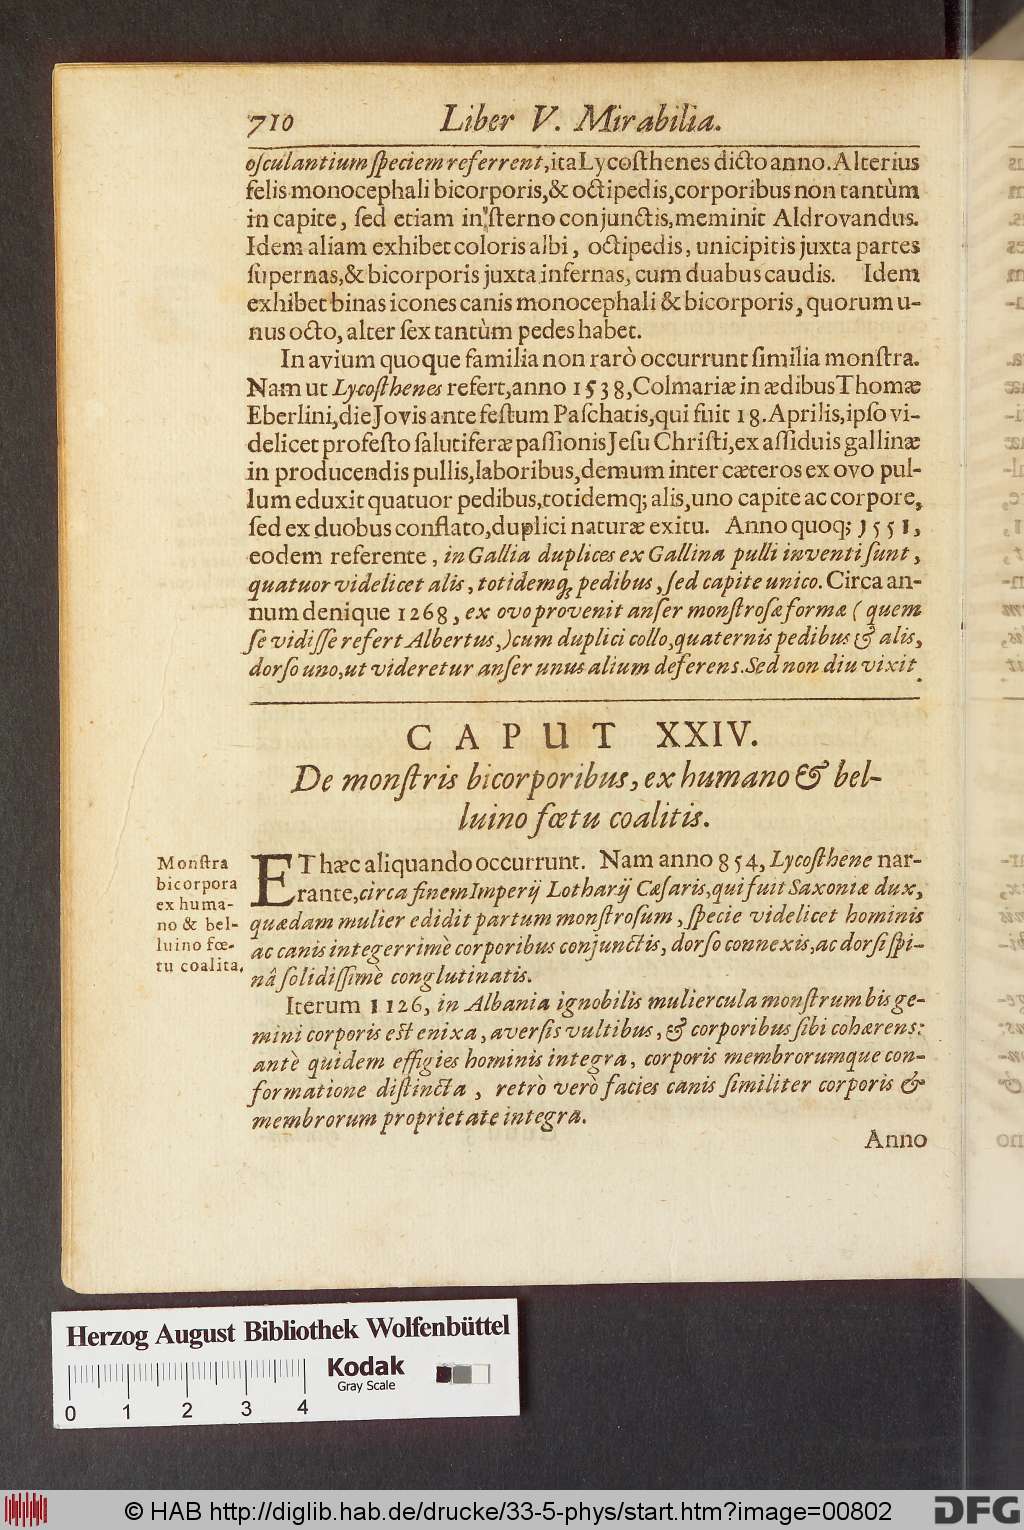 710 Liber V. Mirabilia.
osculantium ſpeciem referrent, ita Lycoſthenes dicto anno. Alterius
felis monocephali bicorporis, & octipedis, corporibus non tantùm
in capite, ſed etiam in ſterno conjunctis, meminit Aldrovandus.
Idem aliam exhibet coloris albi, octipedis, unicipitis juxta partes
ſupernas, & bicorporis juxta infernas, cum duabus caudis. Idem
exhibet binas icones canis monocephali & bicorporis, quorum u-
nus octo, alter ſex tantùm pedes habet.
In avium quoque familia non rarò occurrunt ſimilia monſtra.
Nam ut Lycoſthenes refert, anno 1538, Colmariæ in ædibus Thomæ
Eberlini, die Jovis ante feſtum Paſchatis, qui fuit 18. Aprilis, ipſo vi-
delicet profeſto ſalutiferæ paſſionis Jeſu Chriſti, ex aſſiduis gallinæ
in producendis pullis, laboribus, demum inter cæteros ex ovo pul-
lum eduxit quatuor pedibus, totidemq; alis, uno capite ac corpore,
ſed ex duobus conflato, duplici naturæ exitu. Anno quoq; 1551,
eodem referente, in Gallia duplices ex Gallina pulli inventi ſunt,
quatuor videlicet alis, totidemq; pedibus, ſed capite unico. Circa an-
num denique 1268, ex ovo provenit anſer monſtroſæ formæ ( quem
ſe vidiſſe refert Albertus,) cum duplici collo, quaternis pedibus & alis,
dorſo uno, ut videretur anſer unus alium deferens. Sed non diu vixit.
CAPUT XXIV.
De monſtris bicorporibus, ex humano & bel-
luino fœtu coalitis.
Monſtra
bicorpora
ex huma-
no & bel-
luino fœ-
tu coalita.
ET hæc aliquando occurrunt. Nam anno 854, Lycoſthene nar-
rante, circa finem Imperij Lotharij Cæſaris, qui fuit Saxoniæ dux,
quædam mulier edidit partum monſtroſum, ſpecie videlicet hominis
ac canis integerrimè corporibus conjunctis, dorſo connexis, ac dorſi ſpi-
nâ ſolidiſſimè conglutinatis.
Iterum 1126, in Albania ignobilis muliercula monſtrum bis ge-
mini corporis eſt enixa, averſis vultibus, & corporibus ſibi cohærens:
antè quidem effigies hominis integra, corporis membrorumque con-
formatione diſtincta, retrò verò facies canis ſimiliter corporis &
membrorum proprietate integra.
Anno
Herzog August Bibliothek Wolfenbüttel
Kodak
Gray Scale
0 1 2 3 4
© HAB http://diglib.hab.de/drucke/33-5-phys/start.htm?image=00802
DFG